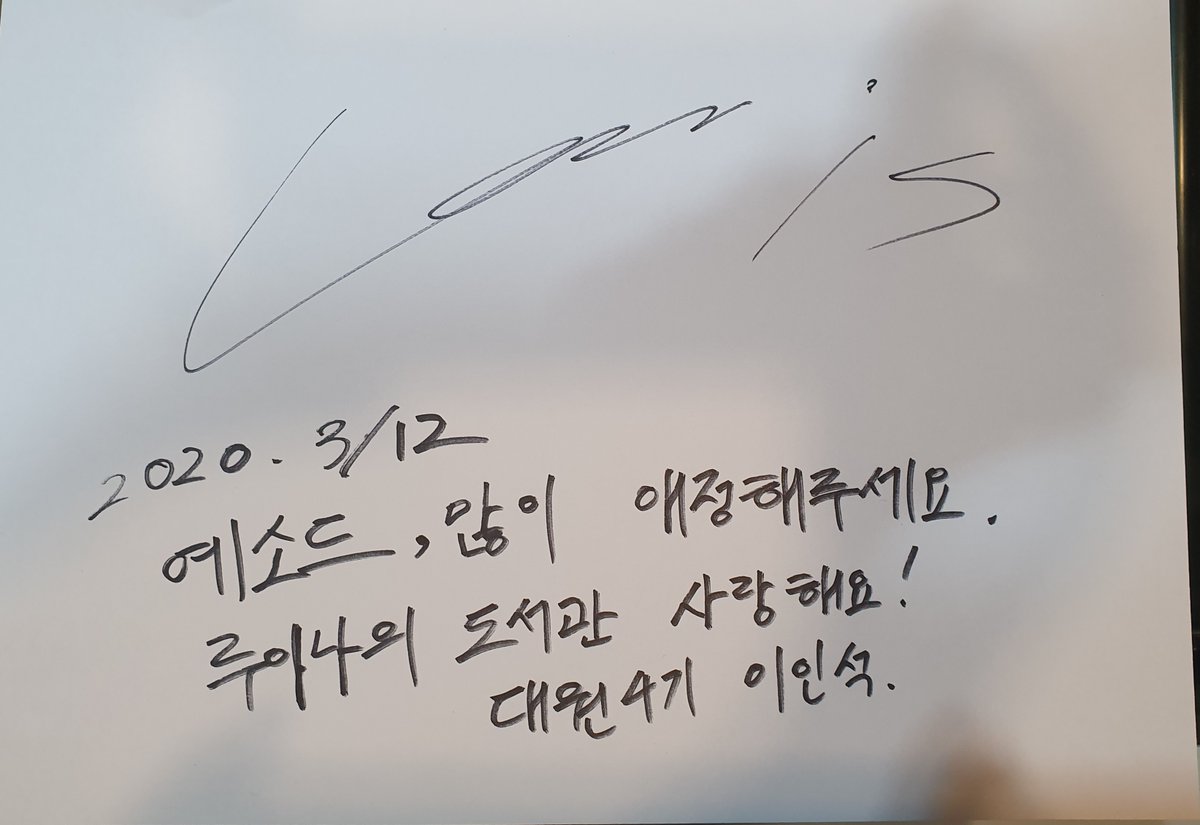 is
2020. 3/12
예소드, 많이 애정해주세요.
루아나의 도서관 사랑해요!
대원4기 이인석.